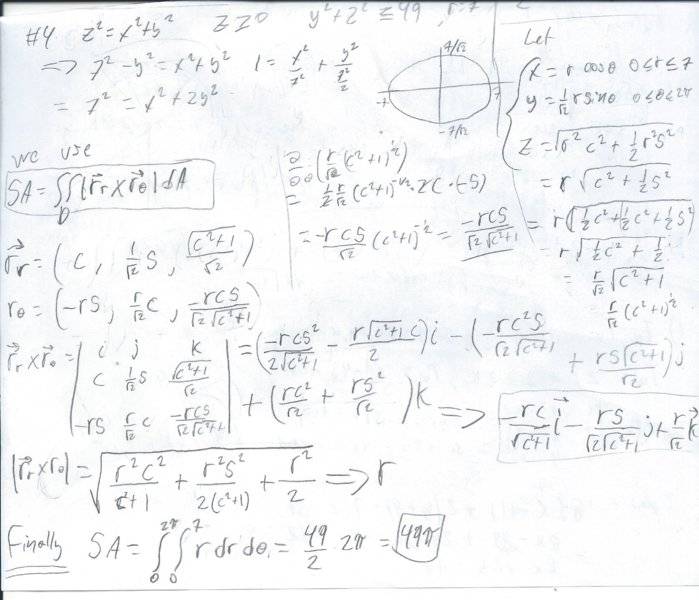 #4 z² = x² + y² z ≥ 0 y² + z² ≤ 49
⇒ 7² - y² = x² + y² 1 = x²/7² + y²/(7²/2)
= 7² = x² + 2y²
7/√2
7
-7/√2
Let
x = r cosθ 0 ≤ r ≤ 7
y = 1/√2 r sinθ 0 ≤ θ ≤ 2π
z = √(r²c² + 1/2 r²s²)
= r √(c² + 1/2 s²)
= r √(1/2 c² + 1/2 c² + 1/2 s²)
= r √(1/2 c² + 1/2)
= r/√2 √(c²+1)
= r/√2 (c²+1)^1/2
we use
SA = ∬_D |r⃗r × r⃗θ| dA
∂/∂θ (r/√2 (c²+1)^1/2)
= 1/2 r/√2 (c²+1)^-1/2 · 2c · (-s)
= -rcs/√2 (c²+1)^-1/2 = -rcs/(√2 √(c²+1))
r⃗r = (c, 1/√2 s, √(c²+1)/√2)
rθ = (-rs, r/√2 c, -rcs/(√2 √(c²+1)))
r⃗r × r⃗θ = | i j k |
| c 1/√2 s √(c²+1)/√2 |
| -rs r/√2 c -rcs/(√2 √(c²+1)) |
= (-rcs²/(2√(c²+1)) - r√(c²+1) c/2) i - (-rc²s/(√2 √(c²+1)) + rs√(c²+1)/√2) j
+ (rc²/√2 + rs²/√2) k ⇒ -rc/√(c²+1) i⃗ - rs/(√2 √(c²+1)) j + r/√2 k⃗
|r⃗r × rθ| = √(r²c²/(c²+1) + r²s²/(2(c²+1)) + r²/2) ⇒ r
Finally SA = ∫₀^2π ∫₀^7 r dr dθ = 49/2 2π = 49π